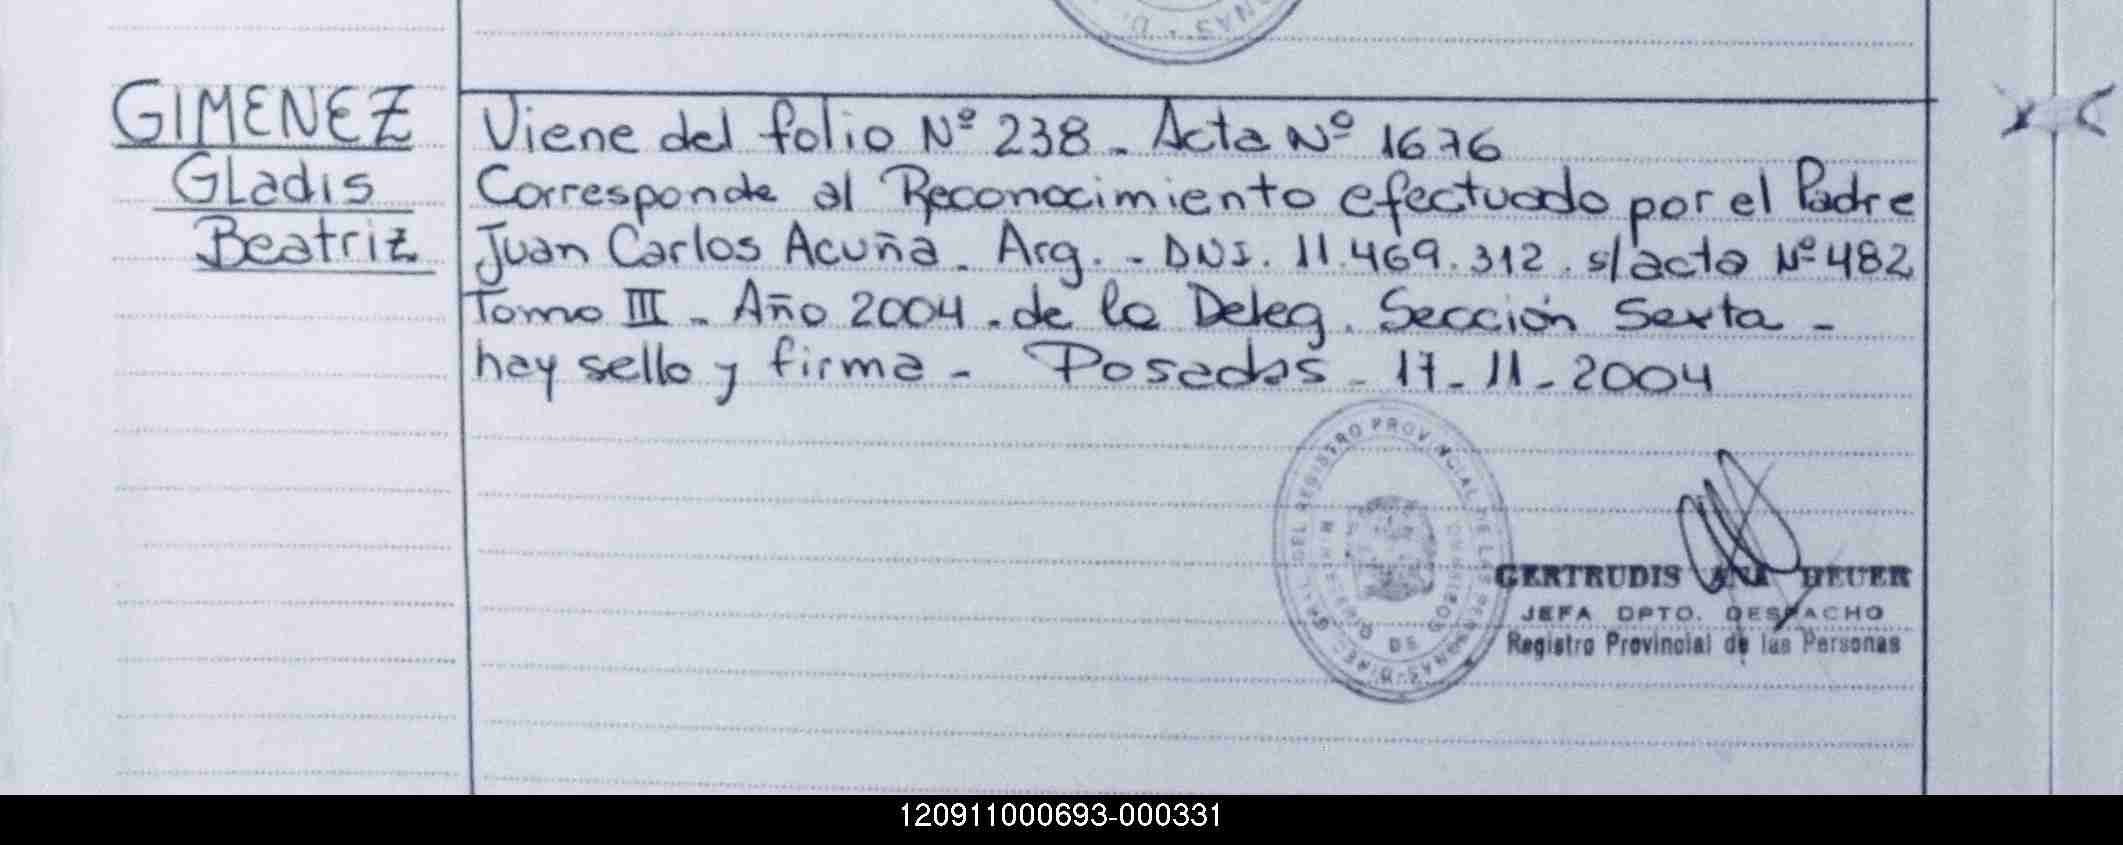 GIMENEZ
Gladis
Beatriz
Viene del folio Nº 238 - Acta Nº 1676
Corresponde al Reconocimiento efectuado por el Padre
Juan Carlos Acuña - Arg. - DNI. 11.469.312. s/acta Nº 482
Tomo III - Año 2004 - de la Deleg. Sección Sexta -
hay sello y firma - Posadas - 17-11-2004
REGISTRO PROVINCIAL DE LAS PERSONAS
GERTRUDIS ANA HEUER
JEFA DPTO. DESPACHO
Registro Provincial de las Personas
120911000693-000331